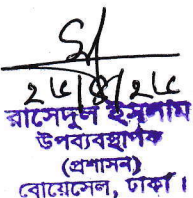 ২৫/৪/২৫
রাসেদুল ইসলাম
উপব্যবস্থাপক
(প্রশাসন)
বোয়েসেল, ঢাকা।